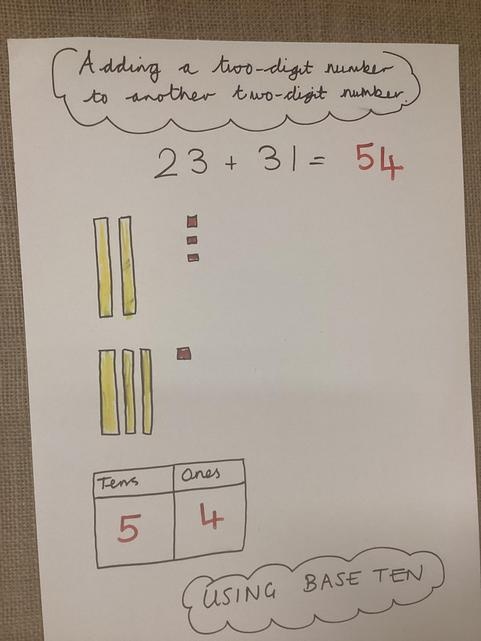 Adding a two-digit number
to another two-digit number.
23 + 31 = 54
Tens Ones
5 4
USING BASE TEN